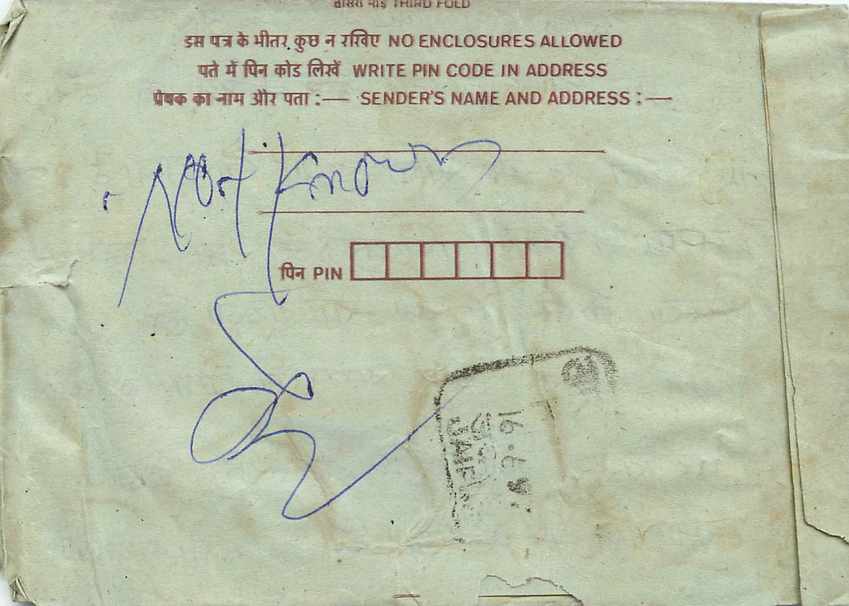 तीसरा मोड़ THIRD FOLD
इस पत्र के भीतर कुछ न रखिए NO ENCLOSURES ALLOWED
पते में पिन कोड लिखें WRITE PIN CODE IN ADDRESS
प्रेषक का नाम और पता :— SENDER'S NAME AND ADDRESS :—
Not Known
पिन PIN